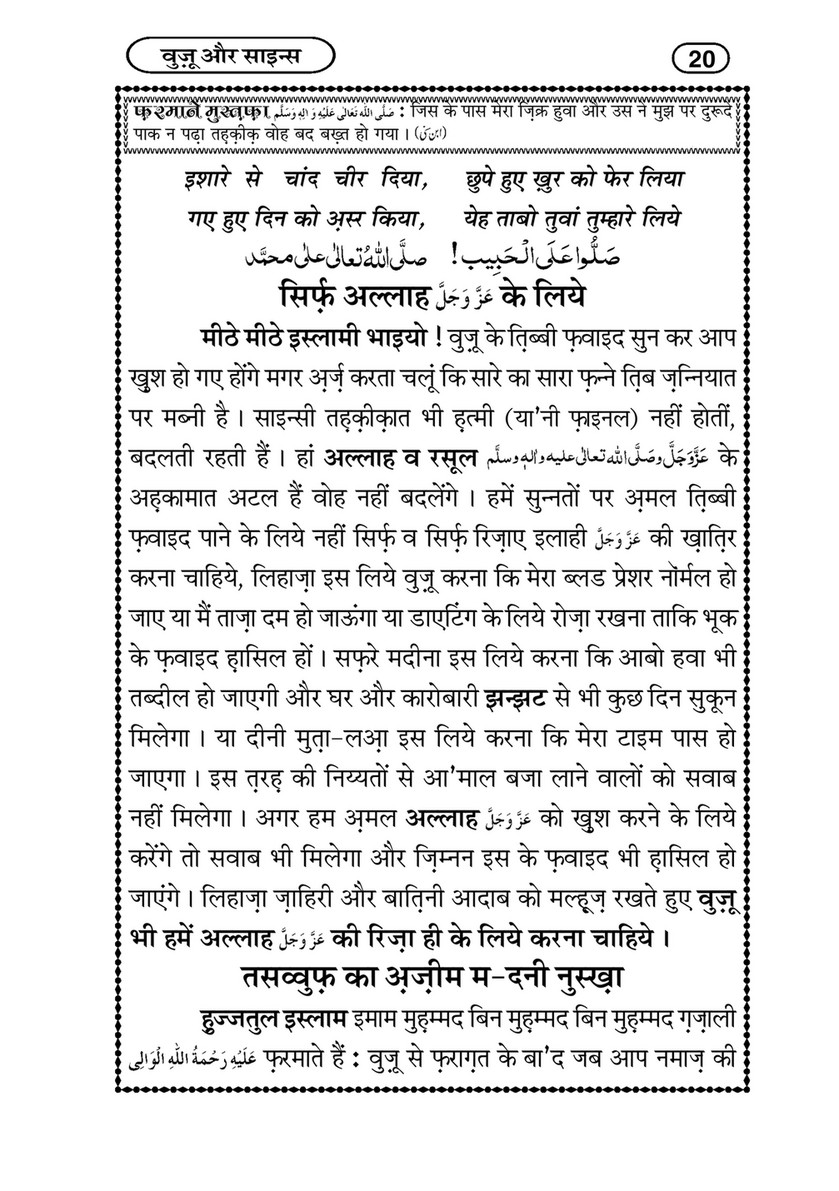 वुज़ू और साइन्स
20
फ़रमाने मुस्तफ़ा صَلَّى اللّٰه تَعَالٰى عَلَيْهِ وَ اٰلِهٖ وَسَلَّم : जिस के पास मेरा ज़िक्र हुवा और उस ने मुझ पर दुरूदे
पाक न पढ़ा तहक़ीक़ वोह बद बख़्त हो गया । (ابن سنی)
इशारे से चांद चीर दिया, छुपे हुए ख़ुर को फेर लिया
गए हुए दिन को अ़स्र किया, येह ताबो तुवां तुम्हारे लिये
صَلُّوا عَلَى الْحَبِيب! صلَّى اللهُ تعالٰى على محمَّد
सिर्फ़ अल्लाह عَزَّ وَجَلَّ के लिये
मीठे मीठे इस्लामी भाइयो ! वुज़ू के त़िब्बी फ़वाइद सुन कर आप
ख़ुश हो गए होंगे मगर अ़र्ज़ करता चलूं कि सारे का सारा फ़न्ने त़िब ज़न्नियात
पर मब्नी है । साइन्सी तह़क़ीक़ात भी ह़त्मी (या'नी फ़ाइनल) नहीं होतीं,
बदलती रहती हैं । हां अल्लाह व रसूल عَزَّوَجَلَّ وصَلَّى اللّٰه تعالٰى عليه واٰله وسلَّم के
अह़कामात अटल हैं वोह नहीं बदलेंगे । हमें सुन्नतों पर अ़मल त़िब्बी
फ़वाइद पाने के लिये नहीं सिर्फ़ व सिर्फ़ रिज़ाए इलाही عَزَّ وَجَلَّ की ख़ात़िर
करना चाहिये, लिहाज़ा इस लिये वुज़ू करना कि मेरा ब्लड प्रेशर नॉर्मल हो
जाए या मैं ताज़ा दम हो जाऊंगा या डाएटिंग के लिये रोज़ा रखना ताकि भूक
के फ़वाइद ह़ासिल हों । सफ़रे मदीना इस लिये करना कि आबो हवा भी
तब्दील हो जाएगी और घर और कारोबारी झन्झट से भी कुछ दिन सुकून
मिलेगा । या दीनी मुत़ा-लआ़ इस लिये करना कि मेरा टाइम पास हो
जाएगा । इस त़रह़ की निय्यतों से आ'माल बजा लाने वालों को सवाब
नहीं मिलेगा । अगर हम अ़मल अल्लाह عَزَّ وَجَلَّ को ख़ुश करने के लिये
करेंगे तो सवाब भी मिलेगा और ज़िम्नन इस के फ़वाइद भी ह़ासिल हो
जाएंगे । लिहाज़ा ज़ाहिरी और बात़िनी आदाब को मल्हूज़ रखते हुए वुज़ू
भी हमें अल्लाह عَزَّ وَجَلَّ की रिज़ा ही के लिये करना चाहिये ।
तसव्वुफ़ का अ़ज़ीम म-दनी नुस्ख़ा
ह़ुज्जतुल इस्लाम इमाम मुह़म्मद बिन मुह़म्मद बिन मुह़म्मद ग़ज़ाली
عَلَيْهِ رَحْمَةُ اللّٰهِ الْوَالِى फ़रमाते हैं : वुज़ू से फ़राग़त के बा'द जब आप नमाज़ की